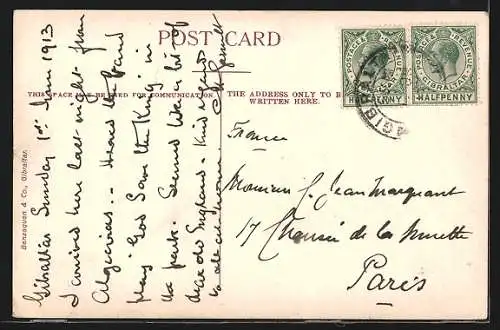 POST CARD
THIS SPACE MAY BE USED FOR COMMUNICATION
THE ADDRESS ONLY TO BE
WRITTEN HERE.
POSTAGE & REVENUE
GIBRALTAR
HALFPENNY
POSTAGE & REVENUE
GIBRALTAR
HALFPENNY
GIBRALTAR
Benzaquen & Co., Gibraltar.
Gibraltar Sunday 1st June 1913
I arrived here last night from
Algeciras. Heard the band
play God Save the King in
the park. Seemed like a bit of
dear old England. Kind regards
to all at home
France
Monsieur J. Jean Marquant
17 Chaussée de la Muette
Paris